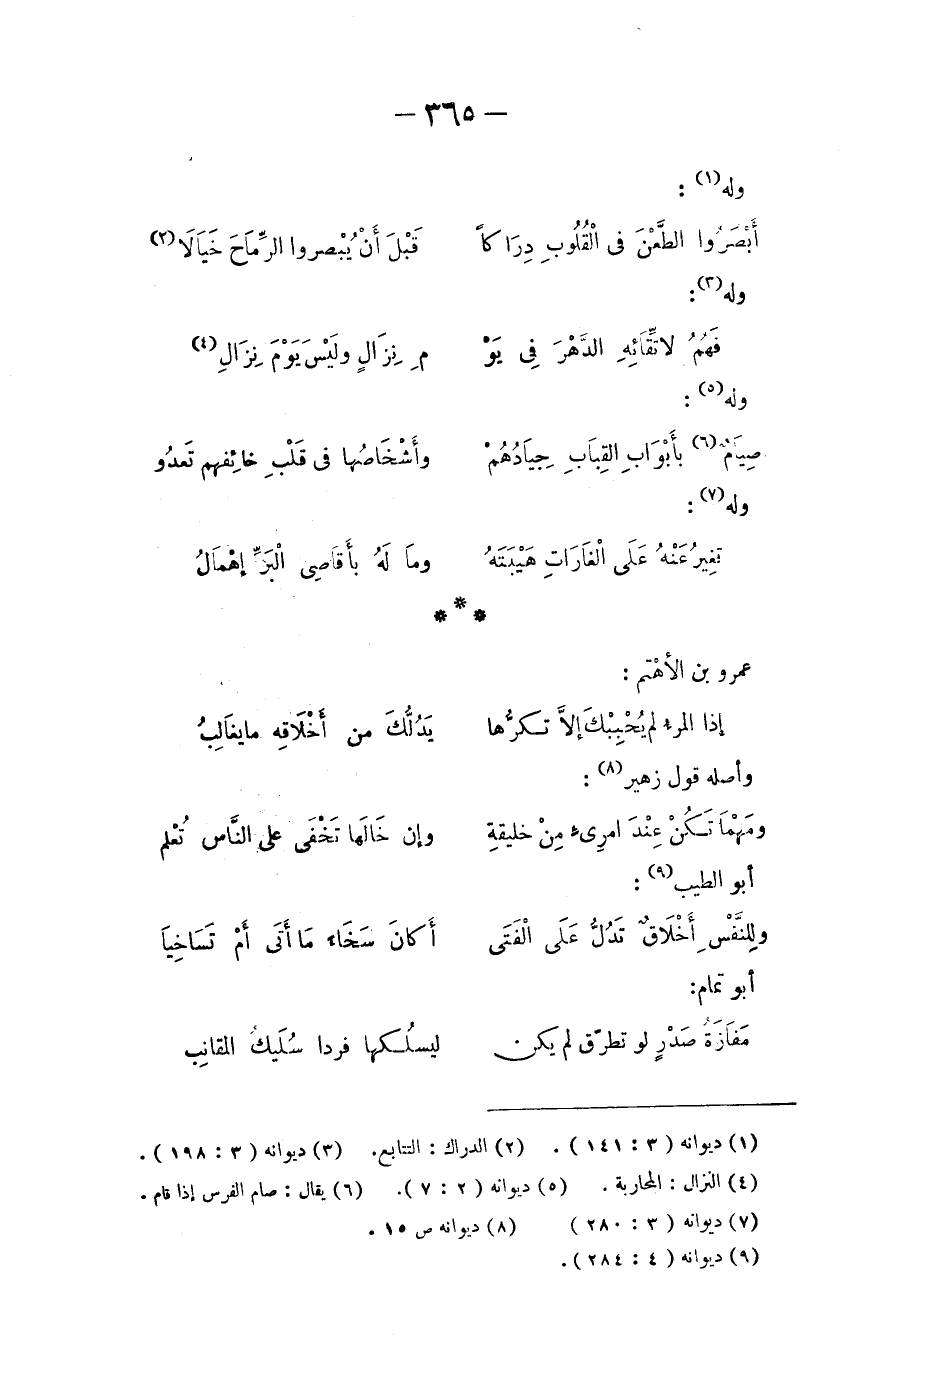 — ٣٦٥ —
وله(١) :
أَبْصَرُوا الطَّعْنَ فى الْقُلُوبِ دِرَا كاً قَبْلَ أَنْ يُبْصروا الرِّمَاحَ خَيَالَا(٢)
وله(٣):
فَهُمُ لاتِّقَائِهِ الدَّهْرَ فِى يَوْ مِ نِزَالٍ ولَيْسَ يَوْمَ نِزَالِ(٤)
وله(٥) :
صِيَامٌ(٦) بأَبْوَابِ القِبَابِ جِيَادُهُمْ وأَشْخَاصُها فى قَلْبِ خائِفهم تَعدُو
وله(٧) :
تغِيرُ عَنْهُ عَلَى الْغَارَاتِ هَيْبَتَهُ ومَا لَهُ بأَقَاصِى الْبَرِّ إهْمَالُ
* * *
عمرو بن الأهْتم :
إذا المرء لم يُحْبِبْكَ إلاَّ تكرُّها يَدُلُّكَ من أَخْلَاقِه مايغَالِبُ
وأصله قول زهير(٨) :
ومَهْمَا تَكُنْ عِنْدَ امرِىء مِنْ خليقةِ وإن خَالَها تَخْفَى على النَّاس تُعْلم
أبو الطيب(٩) :
وللِنَّفْسِ أَخْلَاقٌ تَدُلُّ عَلَى الْفَتَى أَكانَ سَخَاء مَا أَتَى أَمْ تَسَاخِيَا
أبو تمام:
مَفَازَةُ صَدْرٍ لو تطرّق لم يكن ليسلُكها فردا سُلَيكُ المقانِب
(١) ديوانه ( ٣ : ١٤١ ) . (٢) الدراك : التتابع. (٣) ديوانه ( ٣ : ١٩٨ ) .
(٤) النزال : المحاربة . (٥) ديوانه ( ٢ : ٧ ). (٦) يقال : صام الفرس إذا قام .
(٧) ديوانه ( ٣ : ٢٨٠ ) (٨) ديوانه ص ١٥ .
(٩) ديوانه ( ٤ : ٢٨٤ ).